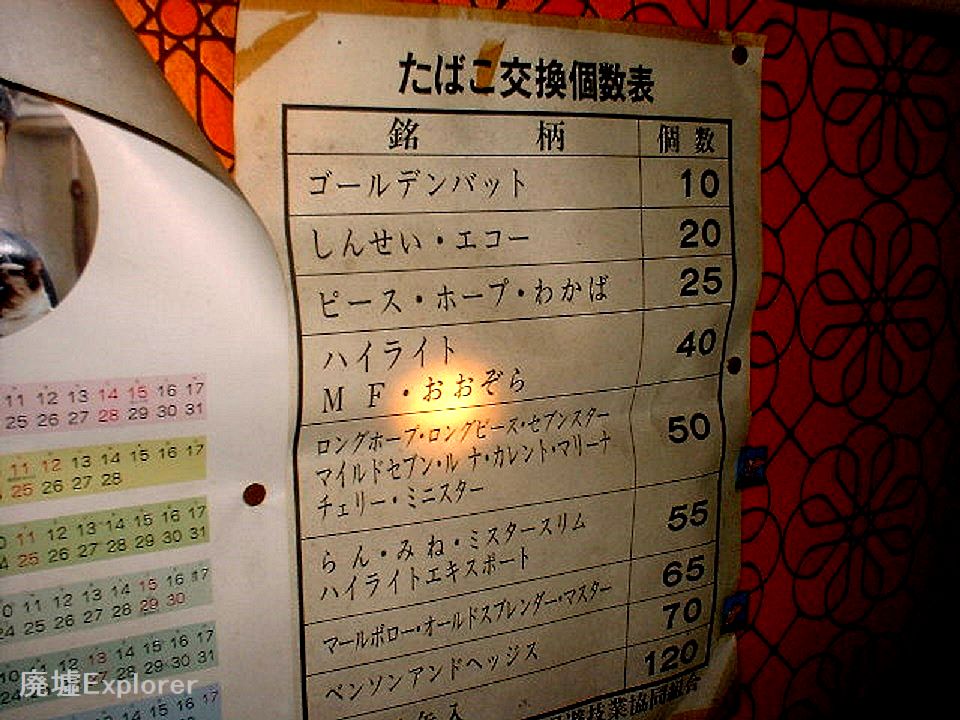 たばこ交換個数表
銘 柄 個 数
ゴールデンバット 10
しんせい・エコー 20
ピース・ホープ・わかば 25
ハイライト 40
MF・おおぞら
ロングホープ・ロングピース・セブンスター 50
マイルドセブン・ルナ・カレント・マリーナ
チェリー・ミニスター
らん・みね・ミスタースリム 55
ハイライトエキスポート
マールボロー・オールドスプレンダー・マスター 65
ベンソンアンドヘッジス 70
缶入 120
遊技業協同組合
11 12 13 14 15 16 17
25 26 27 28 29 30 31
11 12 13 14 15 16 17
25 26 27 28
11 12 13 14 15 16 17
25 26 27 28 29 30 31
11 12 13 14 15 16 17
24 25 26 27 28 29 30
11 12 13 14 15 16 17
廃墟Explorer